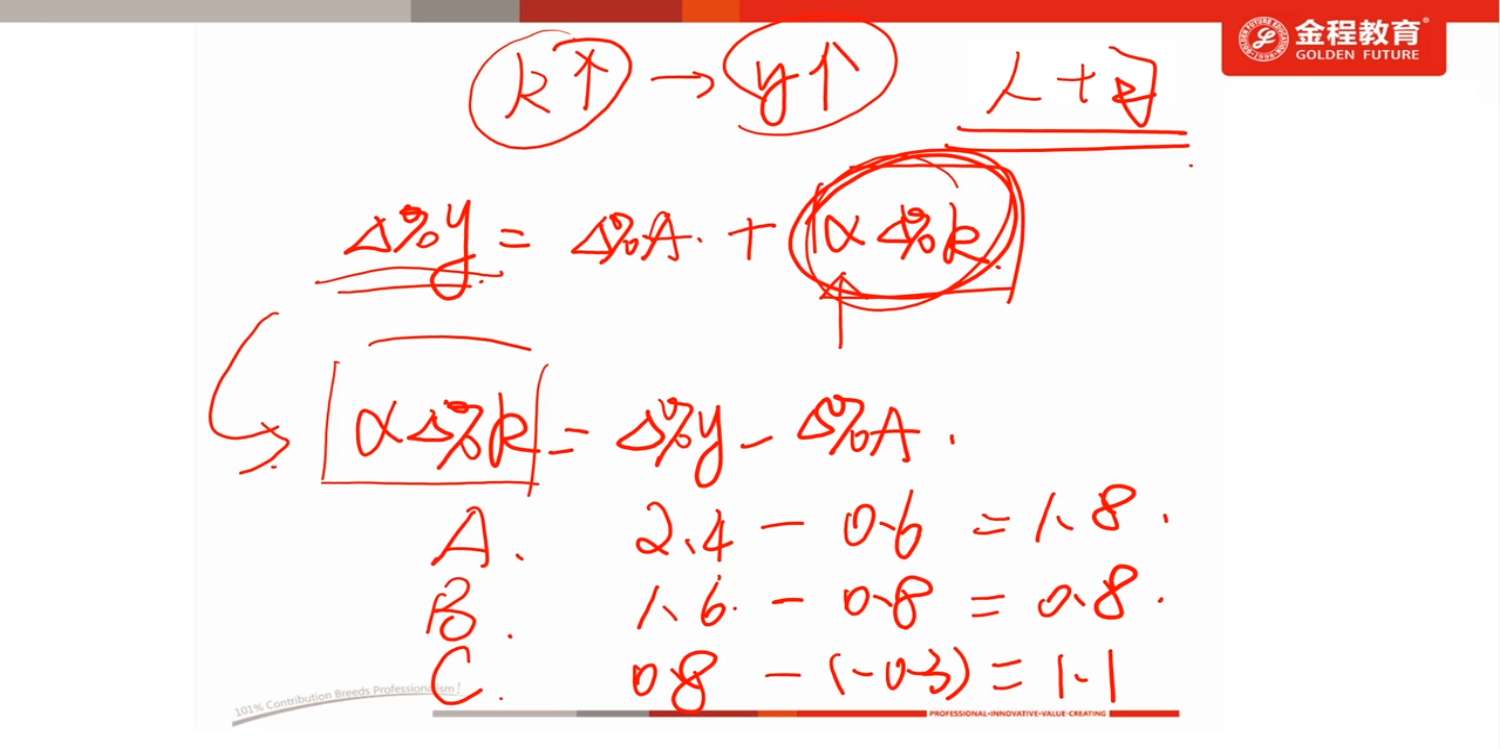 金程教育
GOLDEN FUTURE
k↑ → y↑
人+
Δ%y = Δ%A. + α Δ%k.
αΔ%k = Δ%y - Δ%A.
A. 2.4 - 0.6 = 1.8.
B. 1.6. - 0.8 = 0.8.
C. 0.8 - (-0.3) = 1.1
101% Contribution Breeds Professionalism!
PROFESSIONAL•INNOVATIVE•VALUE-CREATING